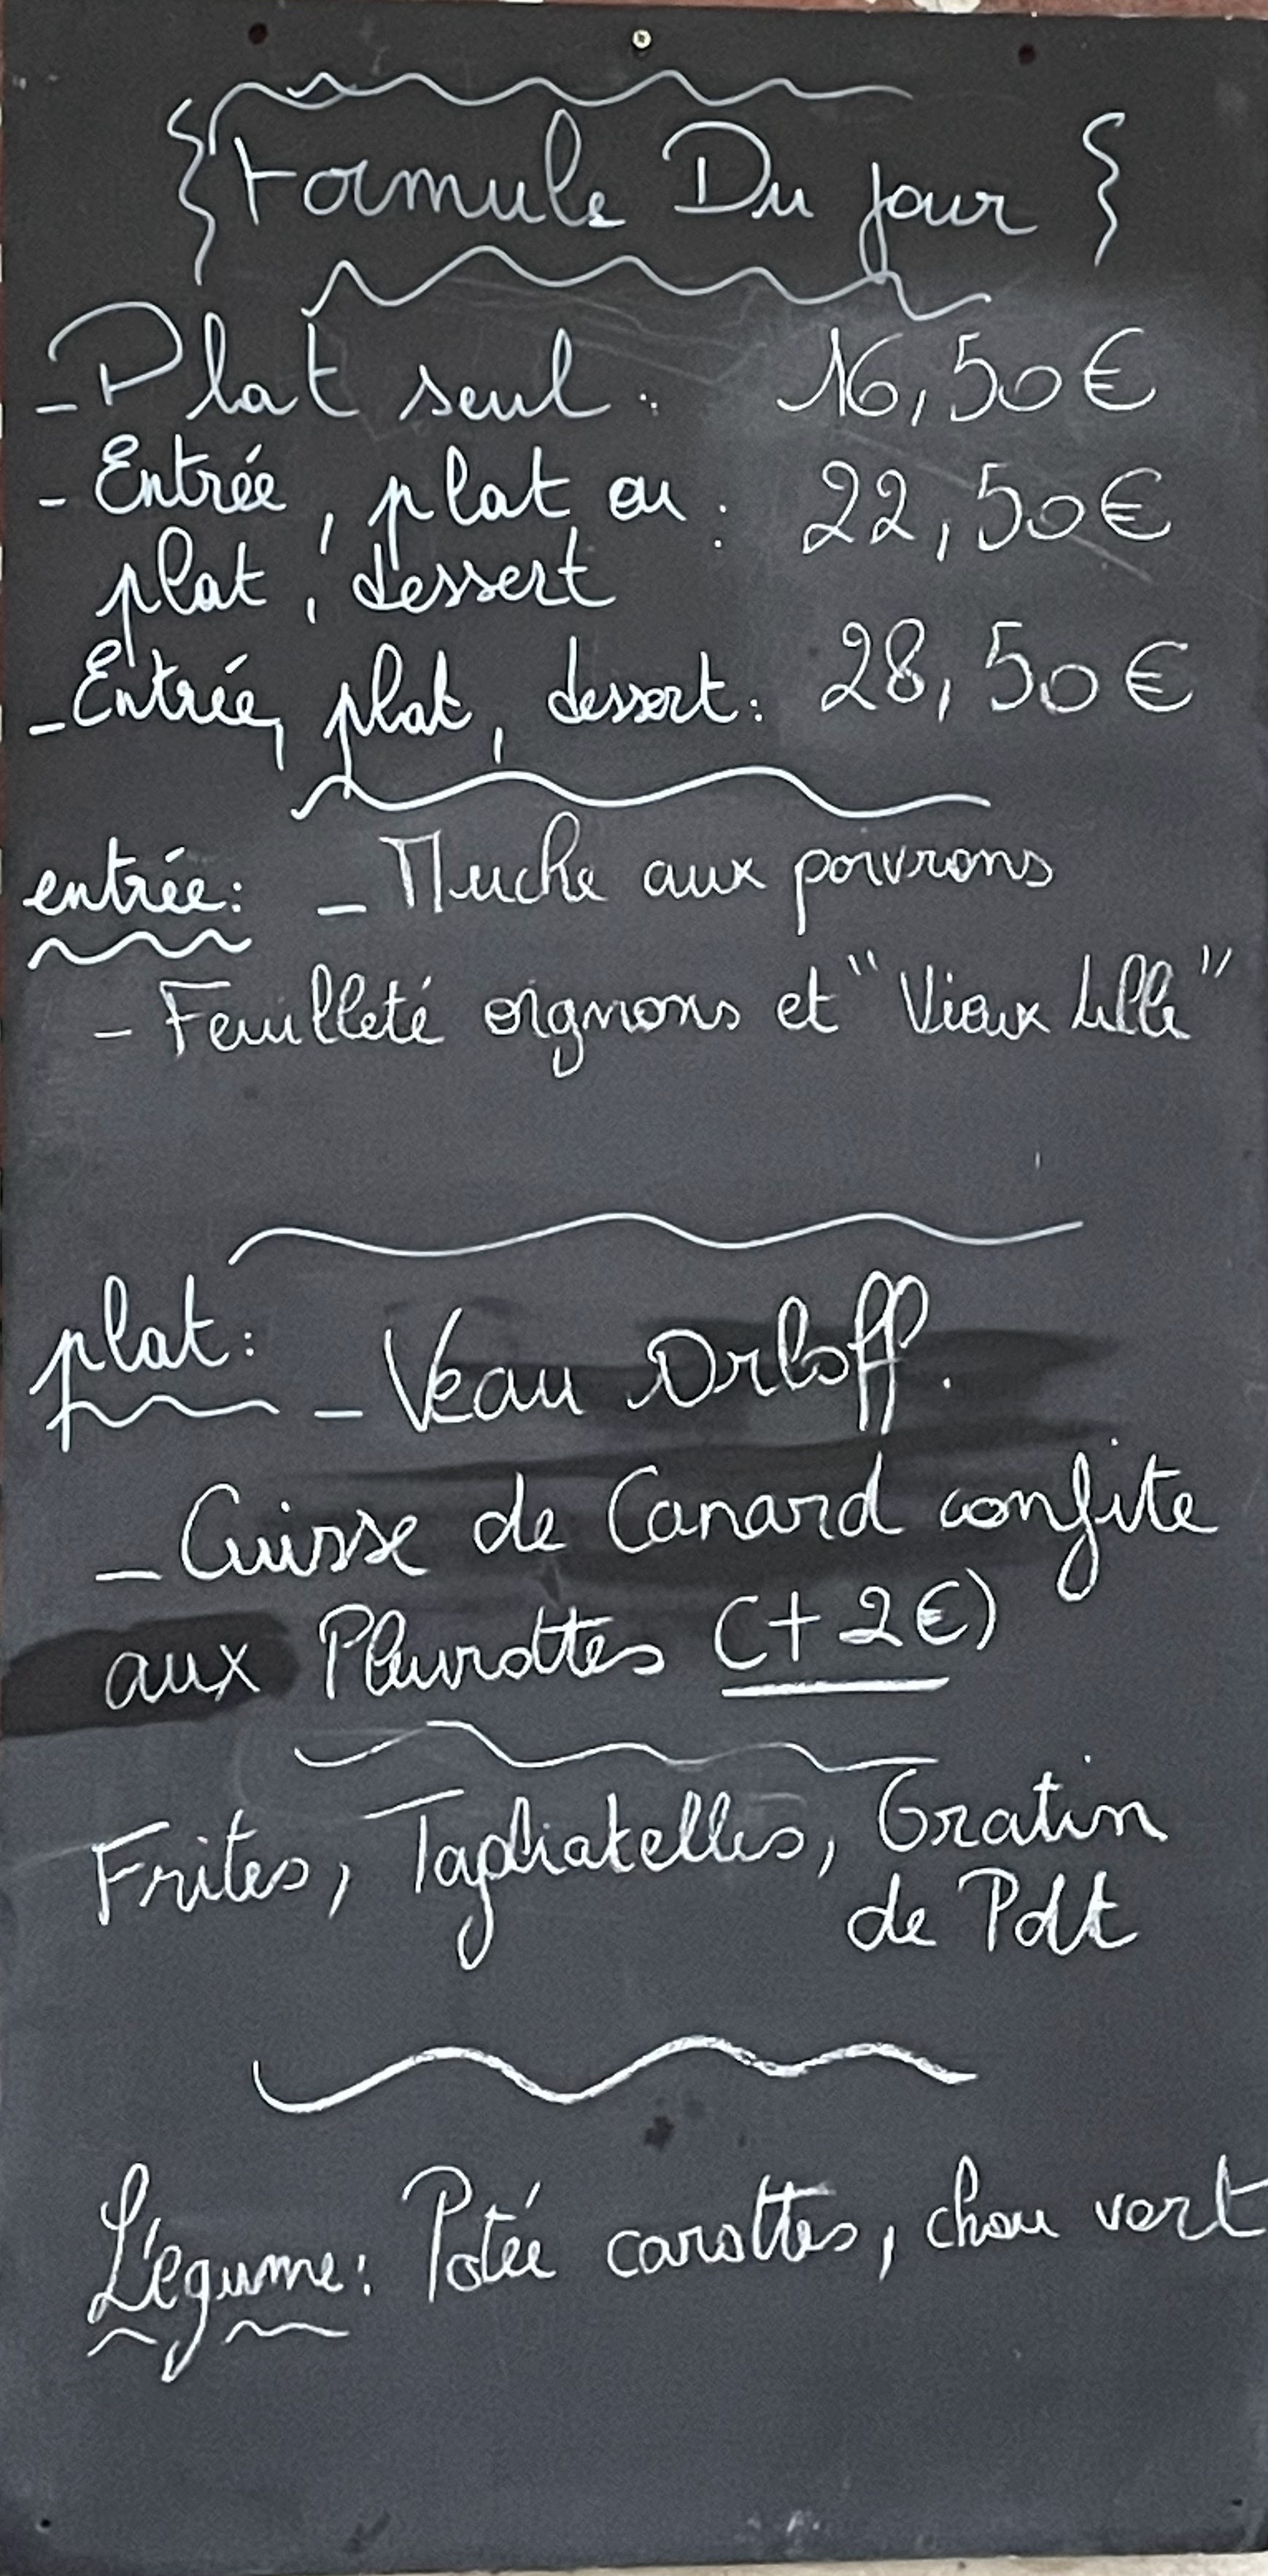 Formule Du jour
- Plat seul : 16,50€
- Entrée, plat ou : 22,50€
plat, dessert
- Entrée, plat, dessert : 28,50€
entrée: - Muche aux poivrons
- Feuilleté oignons et "Vieux Lille"
plat: - Veau Orloff.
- Cuisse de Canard confite
aux Pleurottes (+2€)
Frites, Tagliatelles, Gratin
de Pdt
Légume: Potée carottes, chou vert